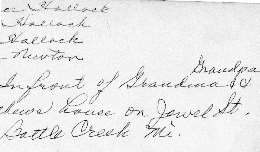 Hallock
Hallock
Hallock
Newton
Grandpa
In front of Grandma &
house on Jewel St.
Battle Creek Mi.